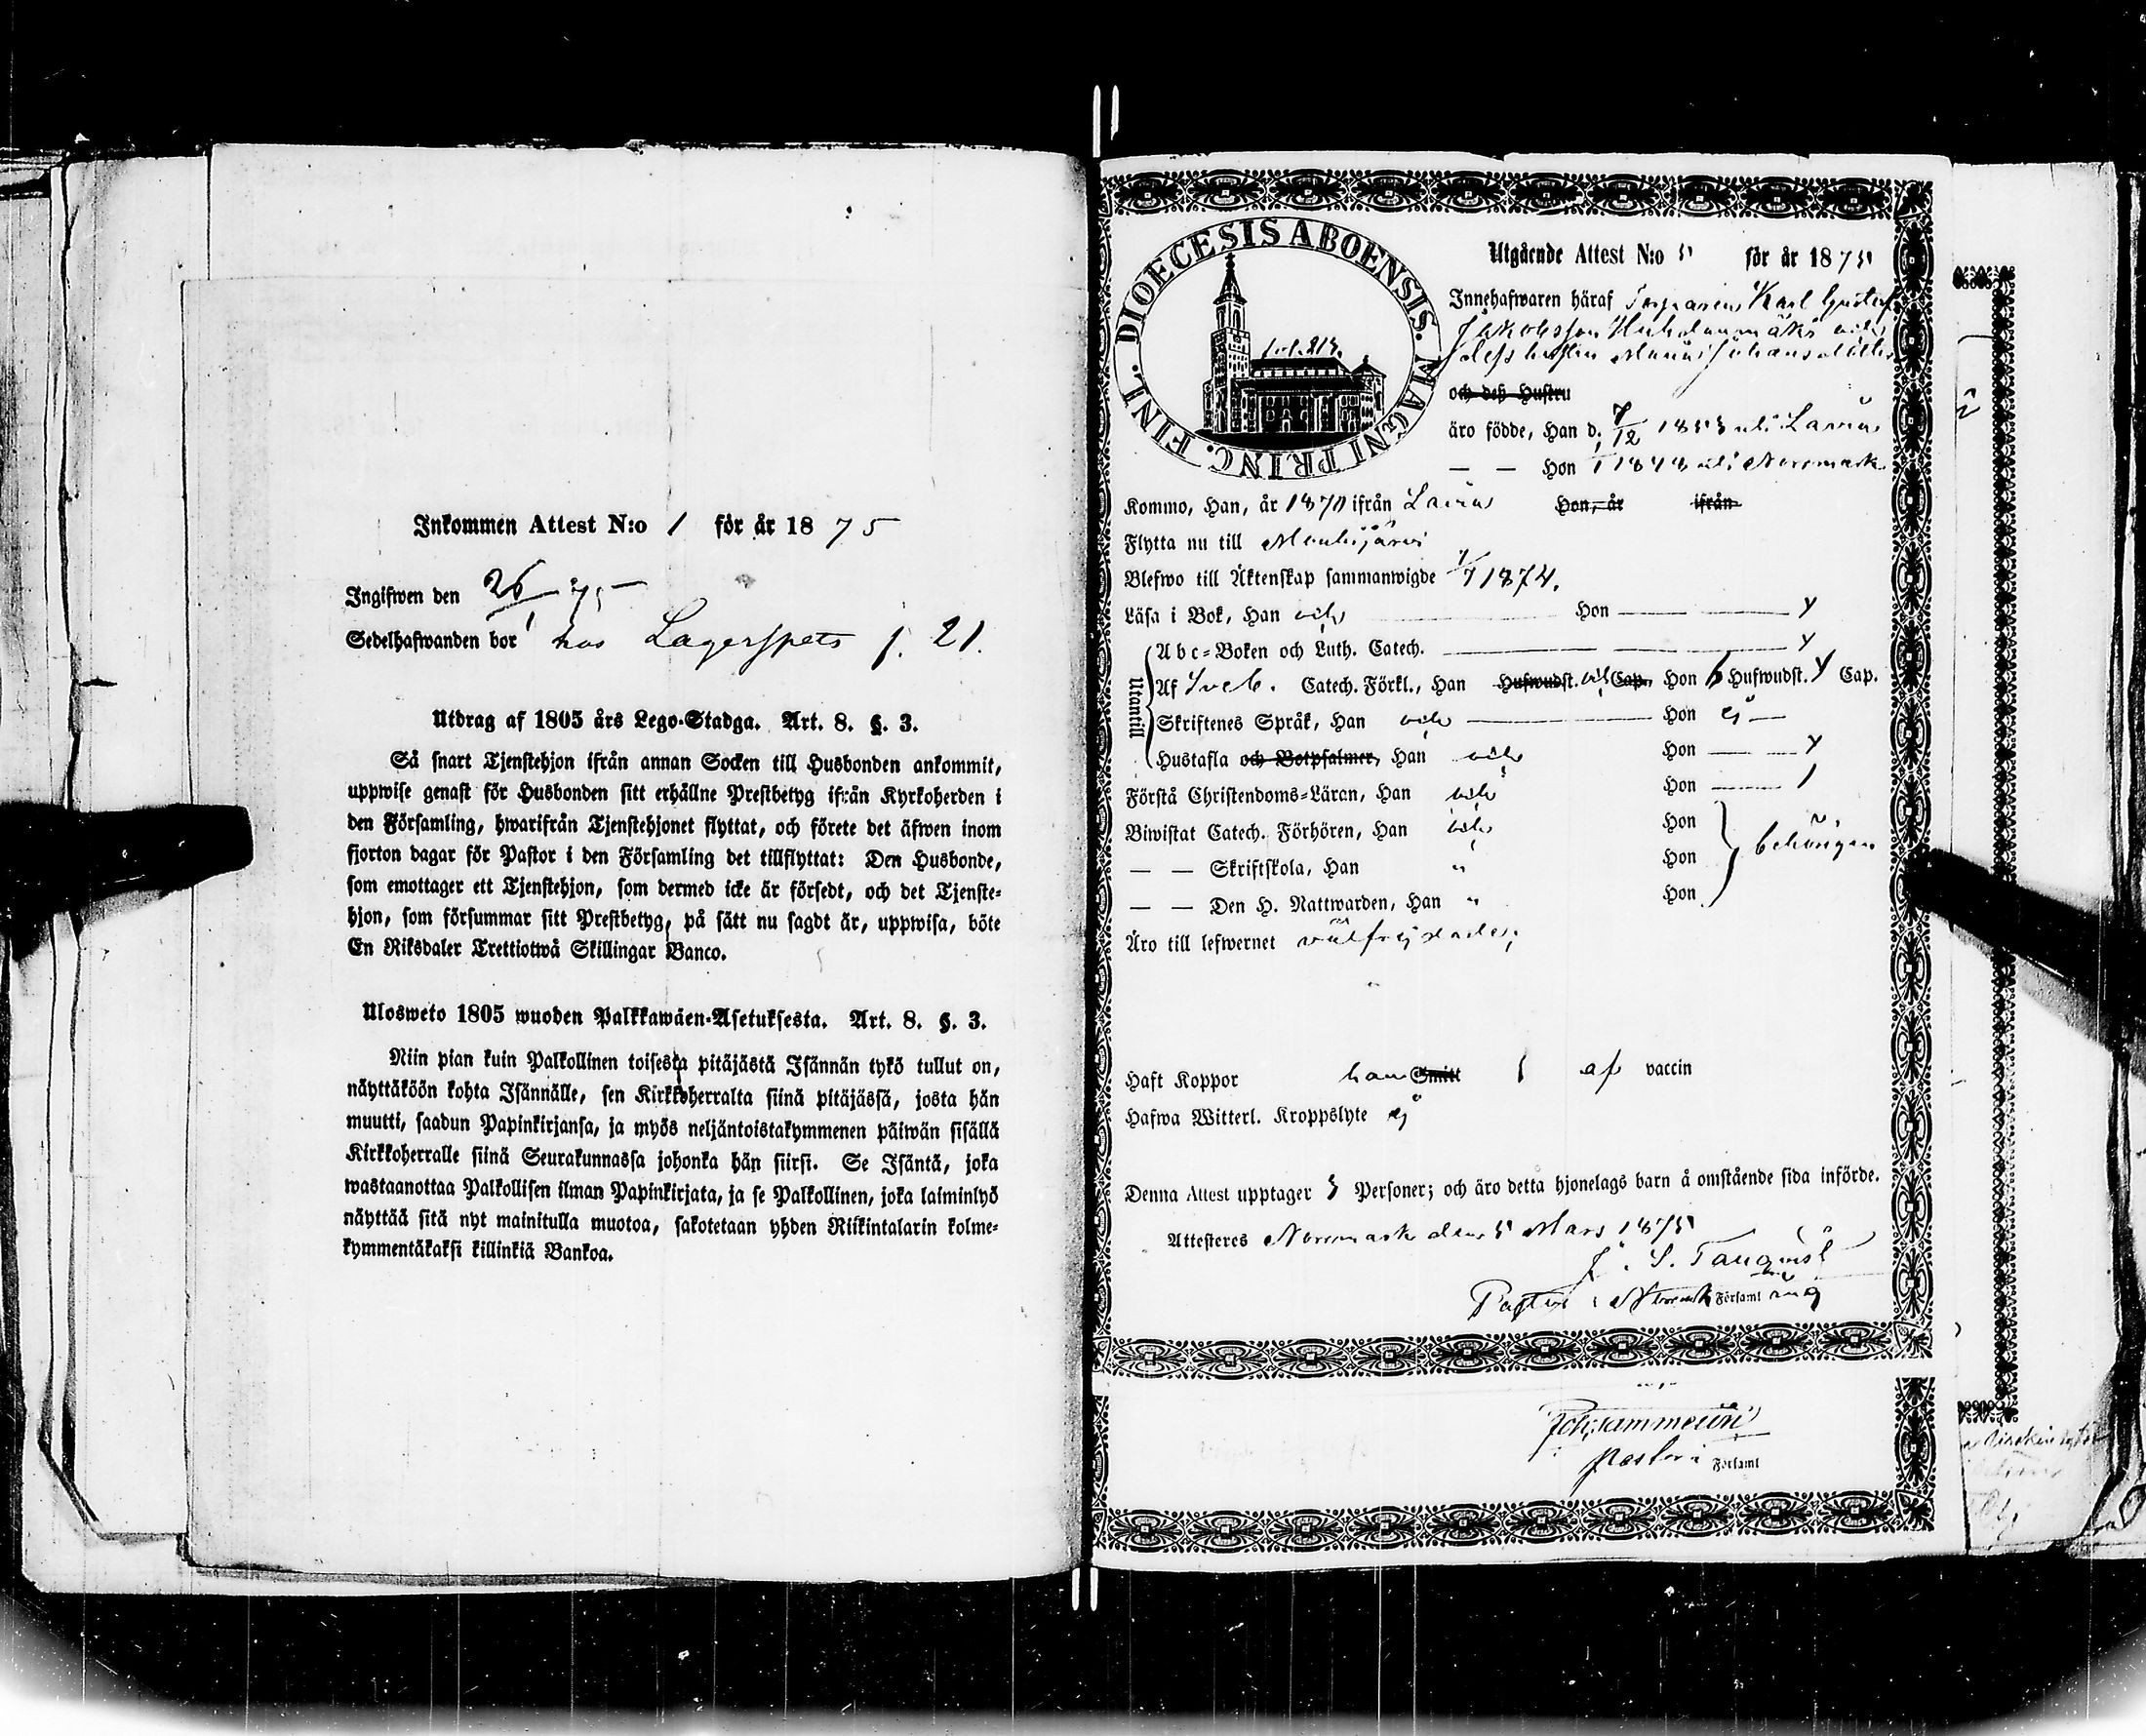 Inkommen Attest N:o 1 för år 1875
Ingifwen den 26/1 75
Sedelhafwanden bor hos Lagerspets f. 21.
Utdrag af 1805 års Lego-Stadga. Art. 8. §. 3.
Så snart Tjenstehjon ifrån annan Socken till Husbonden ankommit,
uppwise genast för Husbonden sitt erhållne Prestbetyg ifrån Kyrkoherden i
den Församling, hwarifrån Tjenstehjonet flyttat, och förete det äfwen inom
fjorton dagar för Pastor i den Församling det tillflyttat: Den Husbonde,
som emottager ett Tjenstehjon, som dermed icke är försedt, och det Tjenste-
hjon, som försummar sitt Prestbetyg, på sätt nu sagdt är, uppwisa, böte
En Riksdaler Trettiotwå Skillingar Banco.
Ulosweto 1805 wuoden Palkkawäen-Asetuksesta. Art. 8. §. 3.
Niin pian kuin Palkollinen toisesta pitäjästä Isännän tykö tullut on,
näyttäköön kohta Isännälle, sen Kirkkoherralta siinä pitäjässä, josta hän
muutti, saadun Papinkirjansa, ja myös neljäntoistakymmenen päiwän sisällä
Kirkkoherralle siinä Seurakunnassa johonka hän siirsi. Se Isäntä, joka
wastaanottaa Palkollisen ilman Papinkirjata, ja se Palkollinen, joka laiminlyö
näyttää sitä nyt mainitulla muotoa, sakotetaan yhden Riikintalarin kolme-
kymmentäkaksi killinkiä Bankoa.
DIOECESIS ABOENSIS. MAGNI PRINC. FINL.
Utgående Attest N:o 5 för år 1875
Innehafwaren häraf Karl Gustaf
Jakobsson Huhdanmäki och
dess hustru Maria Johansdotter
och deß Hustru
äro födde, Han d. 7/12 1853 i Lavia
— — Hon 1848 i Norrmark
Kommo, Han, år 1870 ifrån Lavia Hon, år ifrån
Flytta nu till Mouhijärvi
Blefwo till Äktenskap sammanwigde 1874.
Läsa i Bok, Han väl Hon
Abc-Boken och Luth. Catech.
Utantill
Af Sveb. Catech. Förkl., Han Hufwudst. väl Cap. Hon 6 Hufwudst. Cap.
Skriftenes Språk, Han väl Hon ej
Hustafla och Botpsalmer, Han väl Hon
Förstå Christendoms-Läran, Han väl Hon
Biwistat Catech. Förhören, Han väl Hon
— — Skriftskola, Han " Hon behörigen
— — Den H. Nattwarden, Han " Hon
Äro till lefwernet välfrejdade;
Haft Koppor han Smitt af vaccin
Hafwa Witterl. Kroppslyte ej
Denna Attest upptager 3 Personer; och äro detta hjonelags barn å omstående sida införde.
Attesteres Norrmark den 5 Mars 1875
J. S. Tanqvist
Pastor i Norrmark Församling
Pastor i Församl